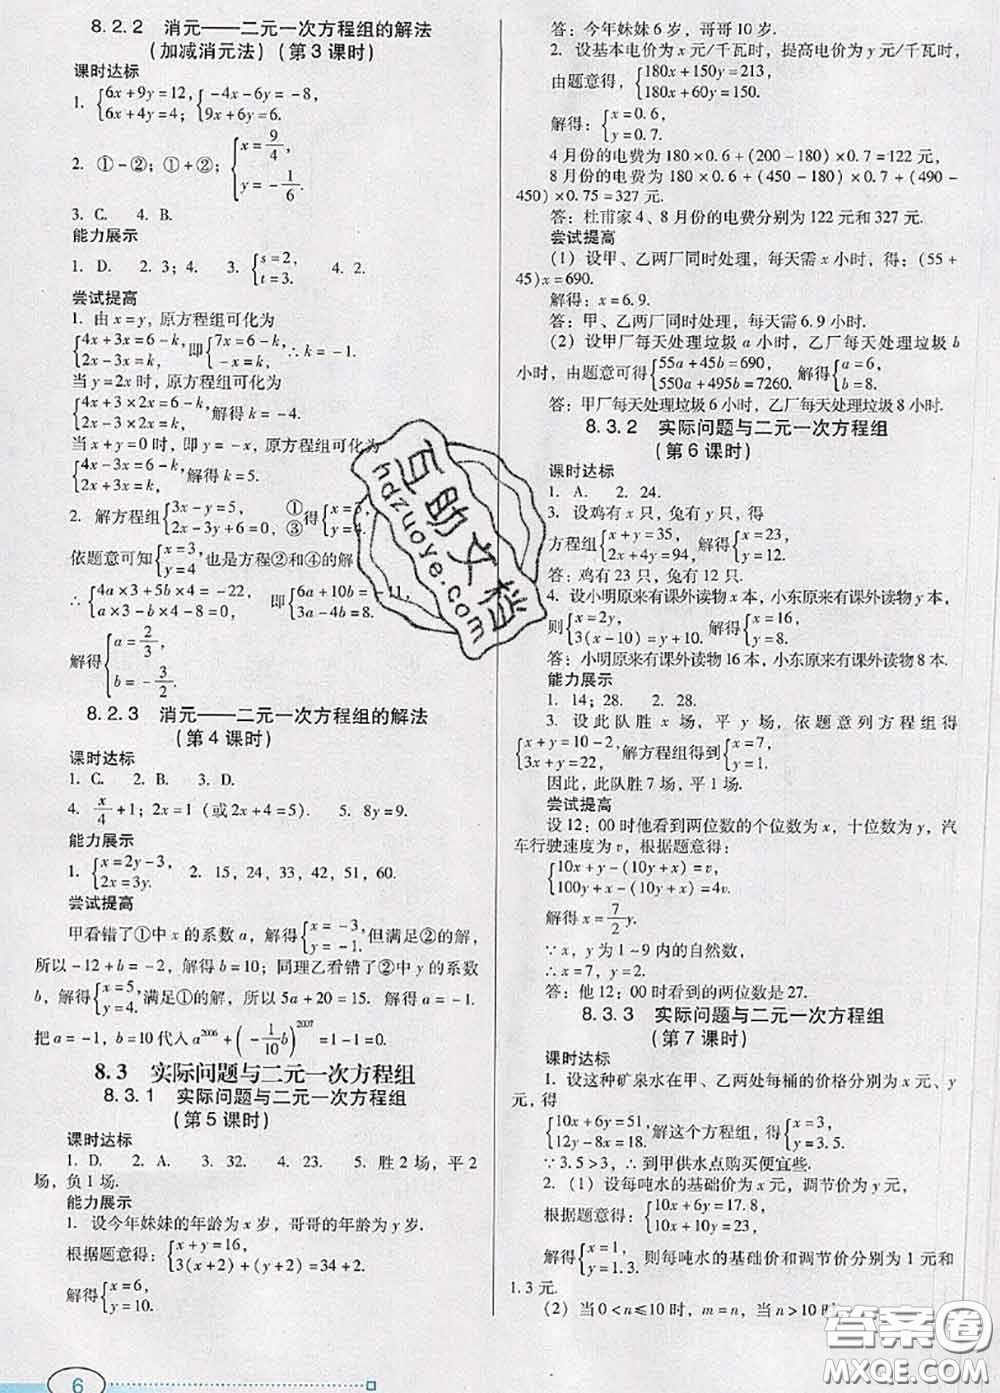 8.2.2 消元——二元一次方程组的解法
(加减消元法)(第3课时)
课时达标
1. {6x+9y=12, 6x+4y=4; {-4x-6y=-8, 9x+6y=6.
2. ①-②;①+②; {x=9/4, y=-1/6.
3. C. 4. B.
能力展示
1. D. 2. 3;4. 3. {s=2, t=3. 4. 2.
尝试提高
1. 由x=y,原方程组可化为
{4x+3x=6-k, 2x-3x=k, 即{7x=6-k, -x=k, ∴k=-1.
当y=2x时,原方程组可化为
{4x+3×2x=6-k, 2x-3×2x=k, 解得k=-4.
当x+y=0时,即y=-x,原方程组可化为
2. 解方程组{3x-y=5, ① 2x-3y+6=0, ③ 得{x=3, y=4.
依题意可知{x=3, y=4 也是方程②和④的解
∴{4a×3+5b×4=-22, a×3-b×4-8=0, 即{6a+10b=-11, 3a-4b=8.
解得{a=2/3, b=-3/2.
8.2.3 消元——二元一次方程组的解法
(第4课时)
课时达标
1. C. 2. B. 3. D.
4. x/4+1;2x=1(或2x+4=5). 5. 8y=9.
能力展示
1. {x=2y-3, 2x=3y. 2. 15,24,33,42,51,60.
尝试提高
甲看错了①中x的系数a,解得{x=-3, y=-1.但满足②的解,
所以-12+b=-2,解得b=10;同理乙看错了②中y的系数
b,解得{x=5, y=4.满足①的解,所以5a+20=15. 解得a=-1.
把a=-1,b=10代入a^2006+(-1/10 b)^2007=1-1=0.
8.3 实际问题与二元一次方程组
8.3.1 实际问题与二元一次方程组
(第5课时)
课时达标
1. D. 2. A. 3. 32. 4. 23. 5. 胜2场,平2
场,负1场.
能力展示
1. 设今年妹妹的年龄为x岁,哥哥的年龄为y岁.
根据题意得:{x+y=16, 3(x+2)+(y+2)=34+2.
解得{x=6, y=10.
答:今年妹妹6岁,哥哥10岁.
2. 设基本电价为x元/千瓦时,提高电价为y元/千瓦时,
由题意得:{180x+150y=213, 180x+60y=150.
解得:{x=0.6, y=0.7.
4月份的电费为180×0.6+(200-180)×0.7=122元,
8月份的电费为180×0.6+(450-180)×0.7+(490-
450)×0.75=327元.
答:杜甫家4、8月份的电费分别为122元和327元.
尝试提高
(1)设甲、乙两厂同时处理,每天需x小时,得:(55+
45)x=690.
解得:x=6.9.
答:甲、乙两厂同时处理,每天需6.9小时.
(2)设甲厂每天处理垃圾a小时,乙厂每天处理垃圾b
小时,由题意可得{55a+45b=690, 550a+495b=7260. 解得{a=6, b=8.
答:甲厂每天处理垃圾6小时,乙厂每天处理垃圾8小时.
8.3.2 实际问题与二元一次方程组
(第6课时)
课时达标
1. A. 2. 24.
3. 设鸡有x只,兔有y只,得
方程组{x+y=35, 2x+4y=94, 解得{x=23, y=12.
答:鸡有23只,兔有12只.
4. 设小明原来有课外读物x本,小东原来有课外读物y本,
则{x=2y, 3(x-10)=y+10. 解得{x=16, y=8.
答:小明原来有课外读物16本,小东原来有课外读物8本.
能力展示
1. 14;28. 2. 28.
3. 设此队胜x场,平y场,依题意列方程组得
{x+y=10-2, 3x+y=22, 解方程组得到{x=7, y=1.
因此,此队胜7场,平1场.
尝试提高
设12:00时他看到两位数的个位数为x,十位数为y,汽
车行驶速度为v,根据题意得:
{10x+y-(10y+x)=v, 100y+x-(10x+y)=4v.
解得x=7/2 y.
∵x,y为1~9内的自然数,
∴x=7,y=2.
答:他12:00时看到的两位数是27.
8.3.3 实际问题与二元一次方程组
(第7课时)
课时达标
1. 设这种矿泉水在甲、乙两处每桶的价格分别为x元,y
元,得
{10x+6y=51, 12y-8x=18. 解这个方程组,得{x=3, y=3.5.
∵3.5>3,∴到甲供水点购买便宜些.
2. (1)设每吨水的基础价为x元,调节价为y元,
根据题意得:{10x+6y=17.8, 10x+10y=23,
解得{x=1, y=1.3. 则每吨水的基础价和调节价分别为1元和
1.3元.
(2)当0<n≤10时,m=n,当n>10时
6
互助文档
hdzuoye.com
答案圈
MXQE.COM